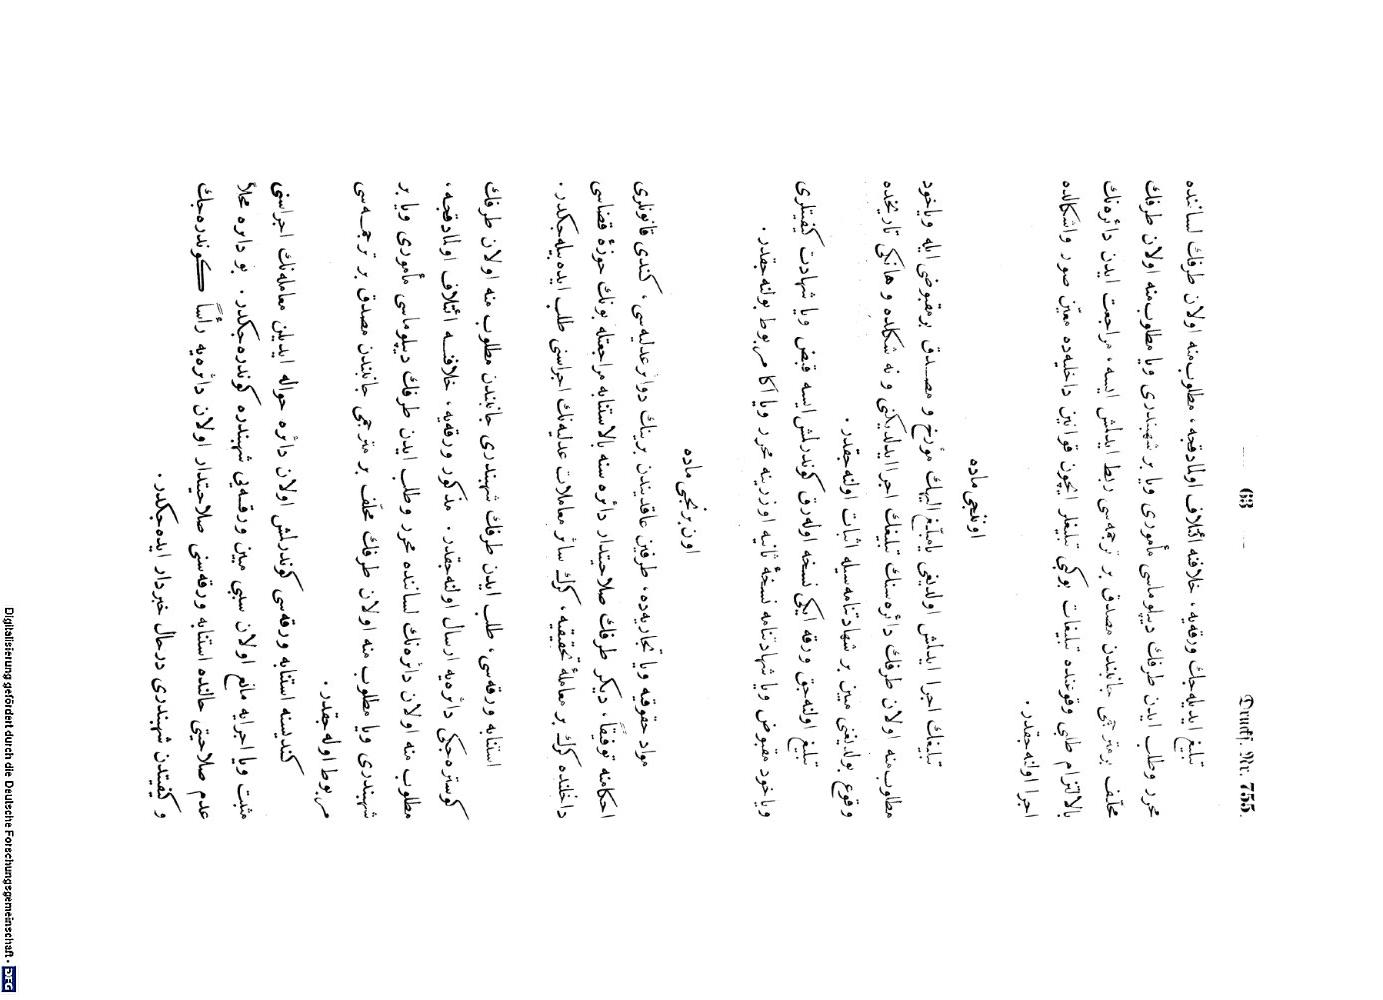 — 63 —
Drucks. Nr. 755.
تبليغ ايديله‌جك ورقه‌يه، خلافنه ائتلاف اولمادقجه، مطلوب‌منه اولان طرفك لساننده
محرر وطلب ايدن طرفك ديپلوماسى مأمورى ويا بر شهبندرى ويا مطلوب‌منه اولان طرفك
محلّف بر مترجمى جانبندن مصدق بر ترجمه‌سى ربط ايدلمش ايسه، مراجعت ايدن دائره‌نك
بالالتزام طلبى وقوعنده تبليغات بوكبى تبليغلر ايچون قوانين داخليه‌ده معيّن صور واشكالده
اجرا اولنه‌جقدر.
اوننجى ماده
تبليغك اجرا ايدلمش اولديغى يامبلّغ اليهك مورّخ و مصدق بر مقبوضى ايله وياخود
مطلوب‌منه اولان طرفك دائره‌سنك تبليغك اجرا ايدلديكنى و نه شكلده و هانكى تاريخده
وقوع بولديغنى مبين بر شهادتنامه‌سيله اثبات اولنه‌جقدر.
تبليغ اولنه‌جق ورقه ايكى نسخه اوله‌رق كوندرلمش ايسه قبض ويا شهادت كيفيتلرى
وياخود مقبوض ويا شهادتنامه نسخۀ ثانيه اوزرينه محرر ويا آكا مربوط بولنه‌جقدر.
اون برنجى ماده
مواد حقوقيه ويا تجاريه‌ده، طرفين عاقديندن برينك دوائر عدليه‌سى، كندى قانونلرى
احكامنه توفيقاً، ديكر طرفك صلاحيتدار دائره‌سنه بالاستنابه مراجعتله بونك حوزۀ قضاسى
داخلنده كرك بر معاملۀ تحقيقيه، كرك سائر معاملات عدليه‌نك اجراسنى طلب ايده‌بيله‌جكدر.
استنابه ورقه‌سى، طلب ايدن طرفك شهبندرى جانبندن مطلوب منه اولان طرفك
كوستره‌جكى دائره‌يه ارسال اولنه‌جقدر. مذكور ورقه‌يه، خلافنه ائتلاف اولمادقجه،
مطلوب منه اولان دائره‌نك لساننده محرر وطلب ايدن طرفك ديپلوماسى مأمورى ويا بر
شهبندرى ويا مطلوب منه اولان طرفك محلّف بر مترجمى جانبندن مصدق بر ترجمه‌سى
مربوط اوله‌جقدر.
كنديسنه استنابه ورقه‌سى كوندرلمش اولان دائره حواله ايديلن معامله‌نك اجراسنى
مثبت ويا اجرايه مانع اولان سببى مبين ورقه‌يى شهبندره كوندره‌جكدر. بو دائره محلاً
عدم صلاحيتى حالنده استنابه ورقه‌سنى صلاحيتدار اولان دائره‌يه رأساً كوندره‌جك
و كيفيتدن شهبندرى درحال خبردار ايده‌جكدر.
Digitalisierung gefördert durch die Deutsche Forschungsgemeinschaft - DFG